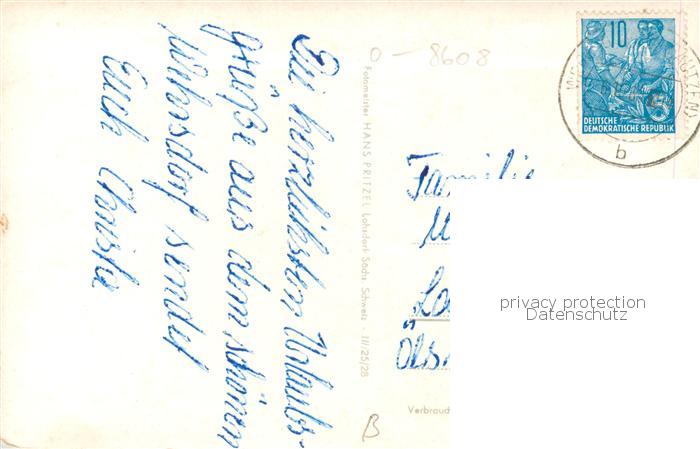 Die herzlichsten Urlaubs-
grüße aus dem schönen
sendet
Euch Christa
0 - 8608
Fotomeister HANS PRITZEL Lohsdorf Sächs. Schweiz · III/25/28
10
DEUTSCHE
DEMOKRATISCHE REPUBLIK
b
Familie
Verbrauch
B
privacy protection
Datenschutz